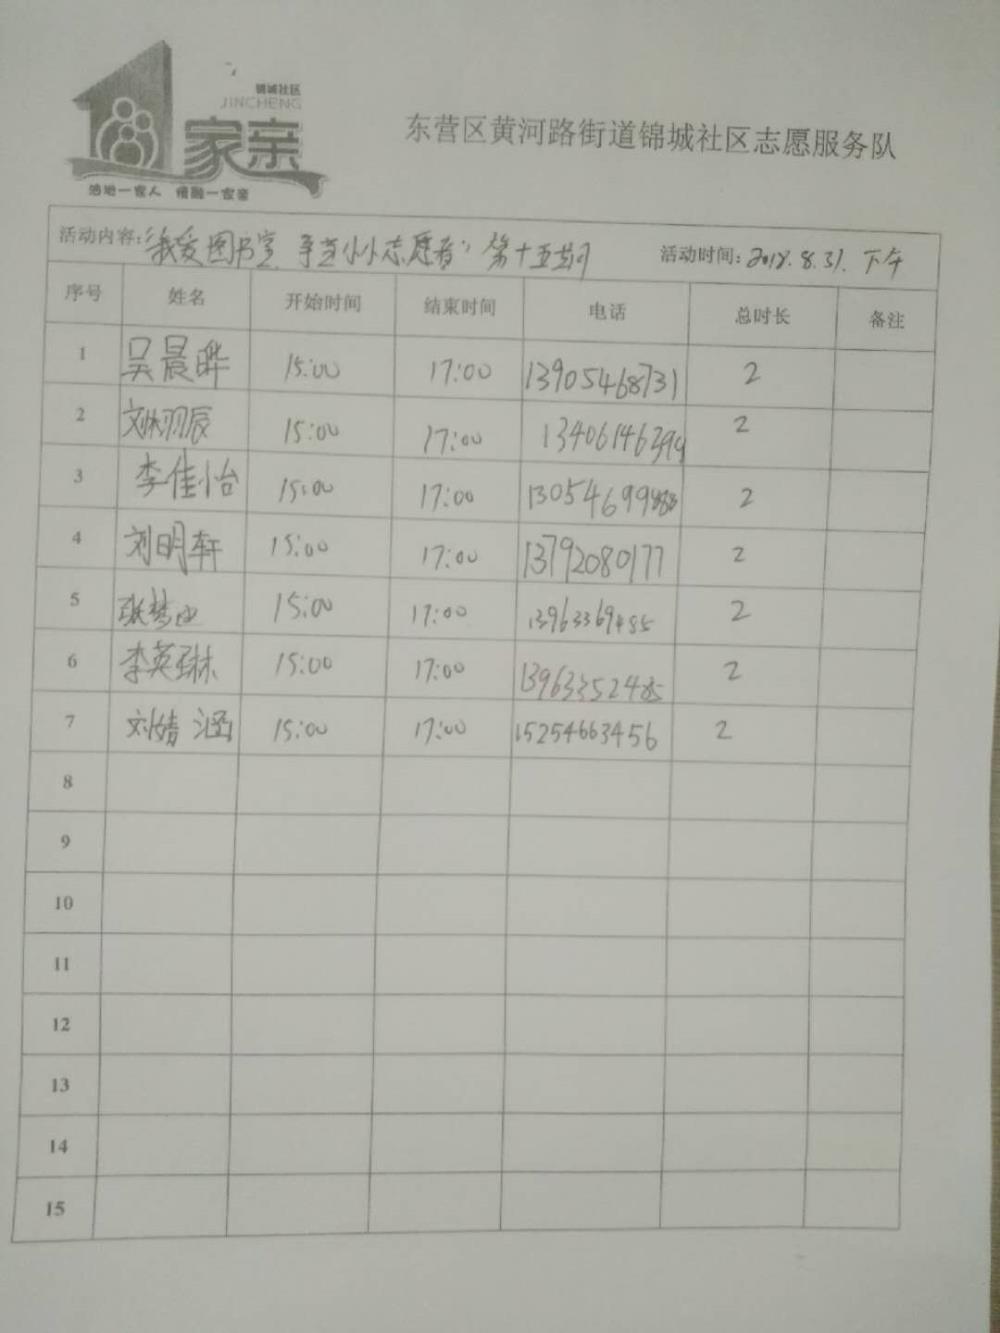 锦城社区
JINCHENG
家亲
洛地一家人 情融一家亲
东营区黄河路街道锦城社区志愿服务队
活动内容:"我爱图书室 争当小小志愿者"第十五期 活动时间:2018.8.31.下午
序号 姓名 开始时间 结束时间 电话 总时长 备注
1 吴晨晔 15:00 17:00 13905468731 2
2 刘林羽辰 15:00 17:00 13406146399 2
3 李佳怡 15:00 17:00 13054699888 2
4 刘明轩 15:00 17:00 13792080177 2
5 张梦 15:00 17:00 13963369485 2
6 李英琳 15:00 17:00 13963352485 2
7 刘婧涵 15:00 17:00 15254663456 2
8
9
10
11
12
13
14
15